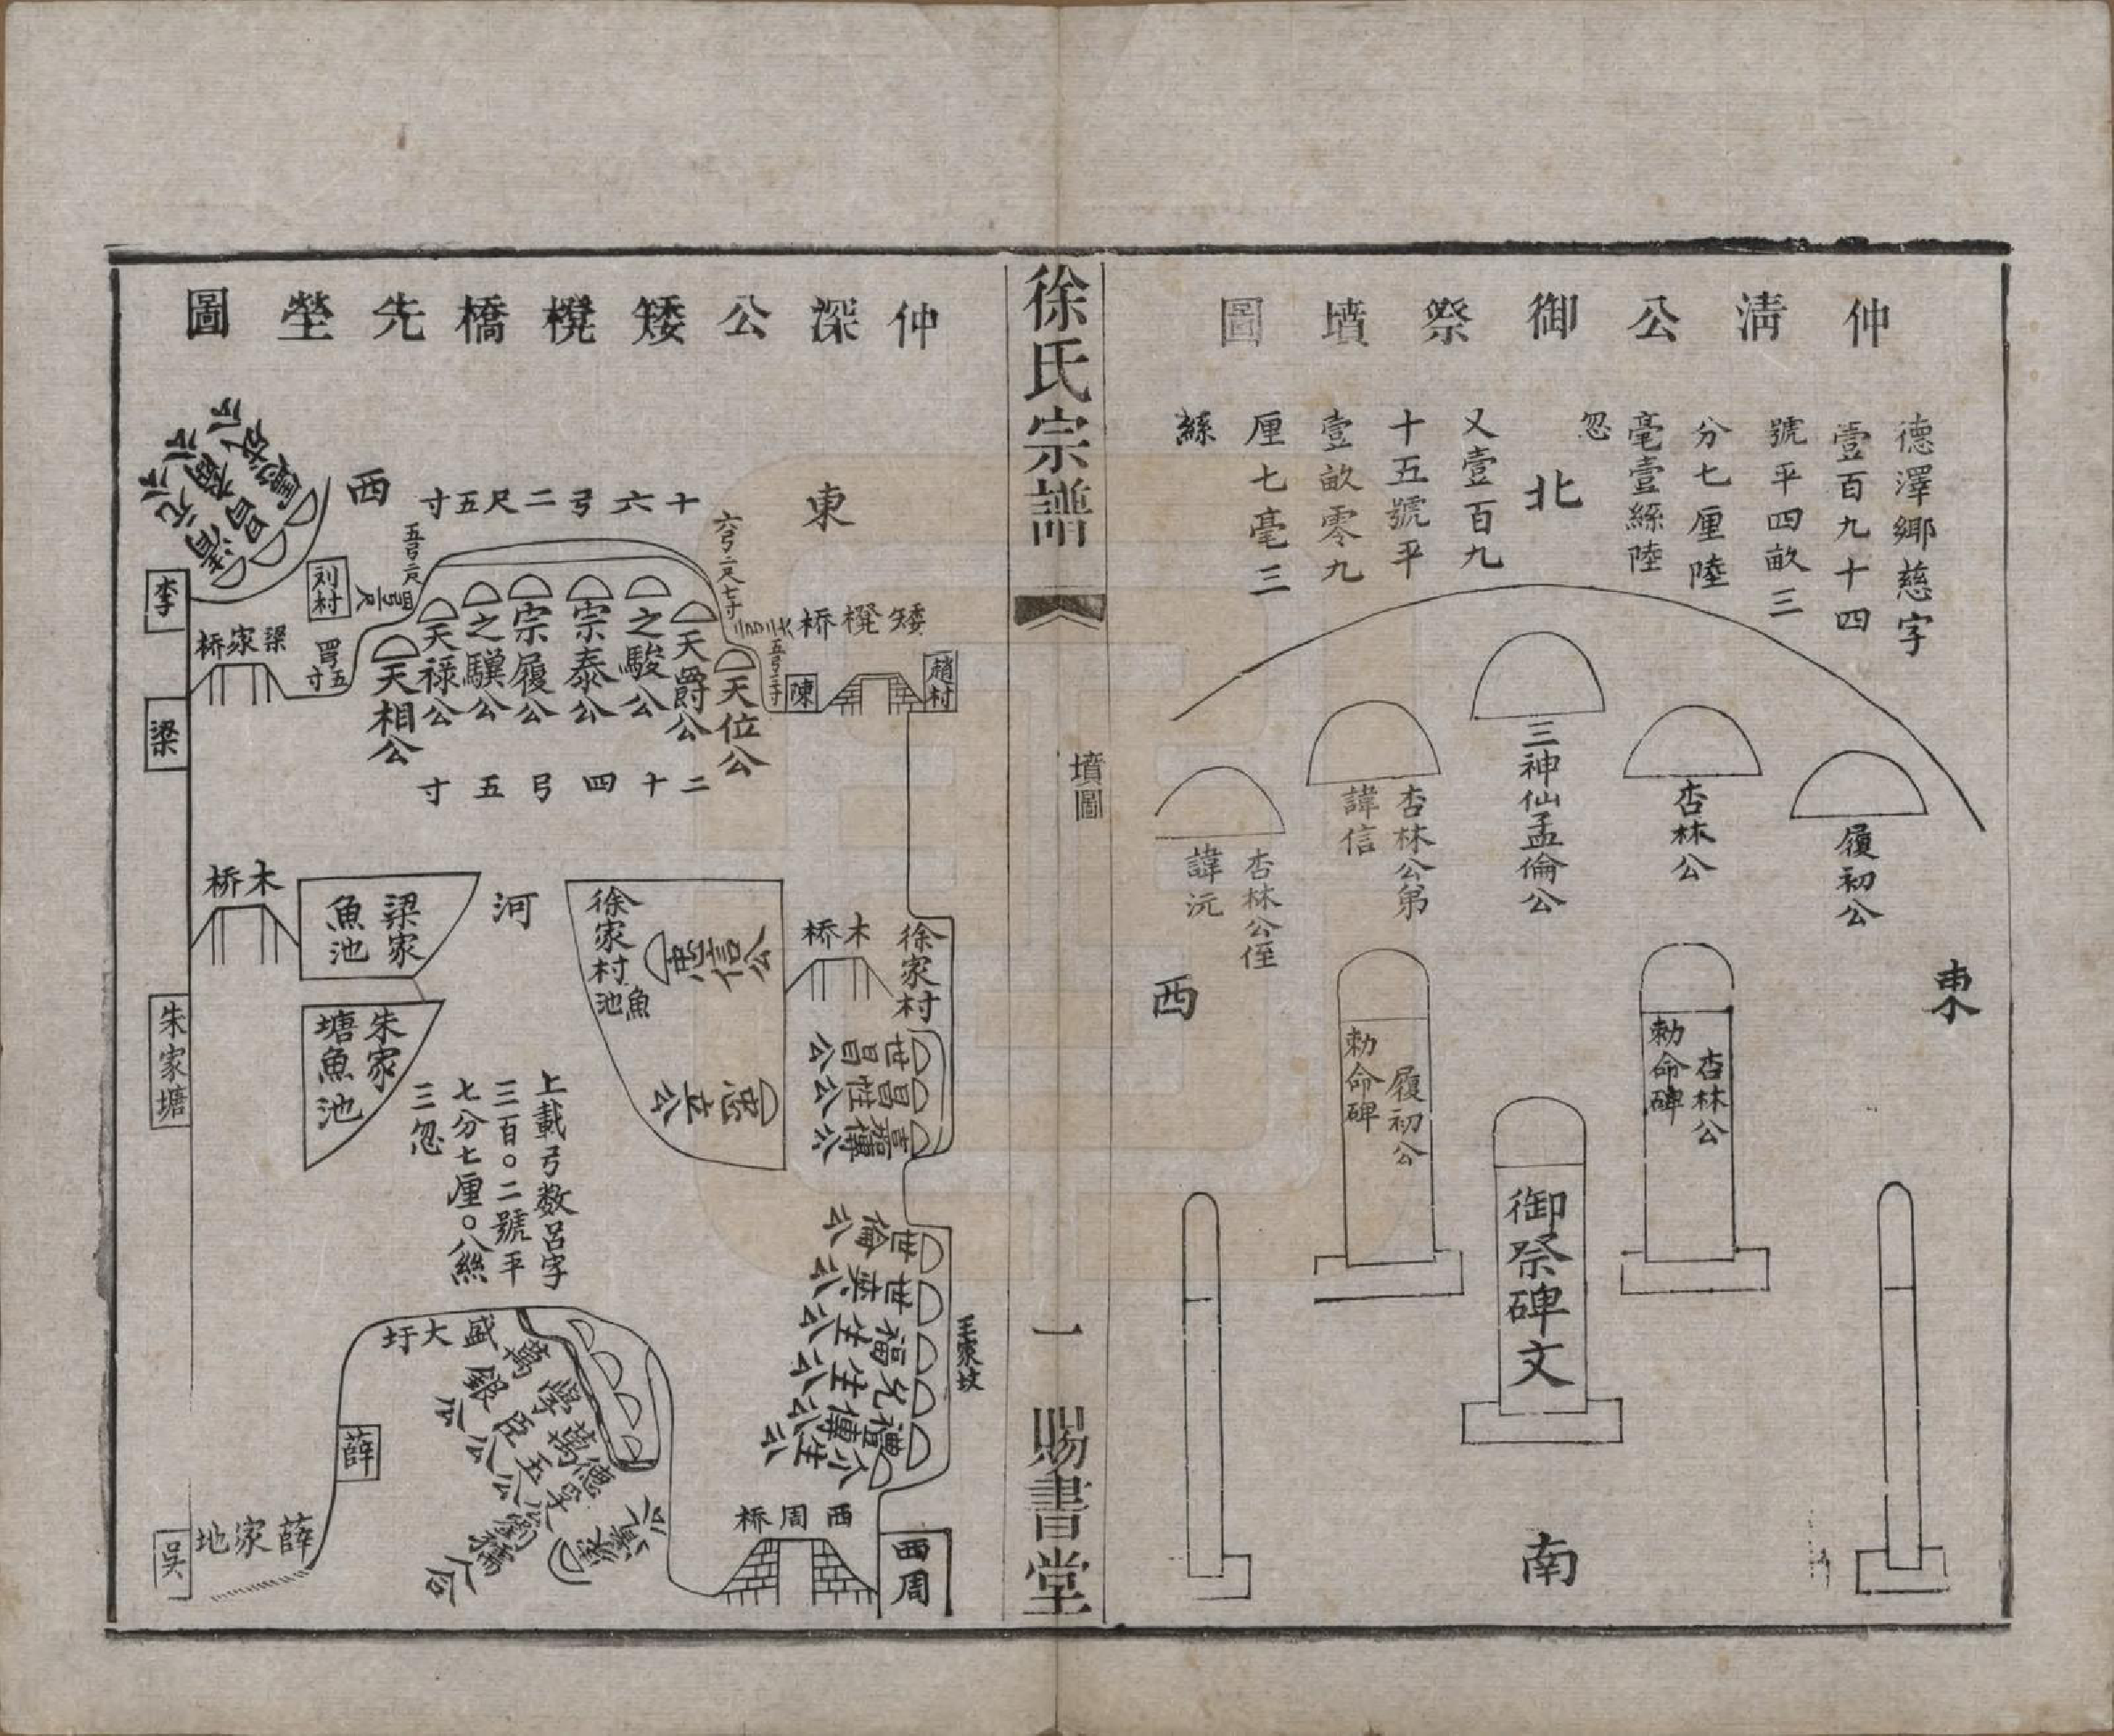 仲淸公御祭墳圖
德澤鄉慈字
壹百九十四
號平四畝三
分七厘陸
毫壹絲陸
忽
北
又壹百九
十五號平
壹畝零九
厘七毫三
絲
履初公
杏林公
三神仙孟倫公
杏林公弟
諱信
杏林公侄
諱沅
東
西
杏林公
勅命碑
履初公
勅命碑
御祭碑文
南
徐氏宗譜
墳圖
一
賜書堂
仲深公矮櫈橋先塋圖
東
西
十六弓二尺五寸
六弓二尺七寸
五弓二尺
矮櫈桥
趙村
陳
天位公
天爵公
之駿公
宗泰公
宗履公
之驥公
天祿公
天相公
二十四弓五寸
刘村
李
梁家桥
梁
木桥
梁家
魚池
河
徐家村
魚池
忠立公
木桥
徐家村
朱家
塘魚池
朱家塘
上載弓数呂字
三百〇二號平
七分七厘〇八絲
三忽
王家坟
西周桥
西周
盛大圩
薛
薛家地
吳